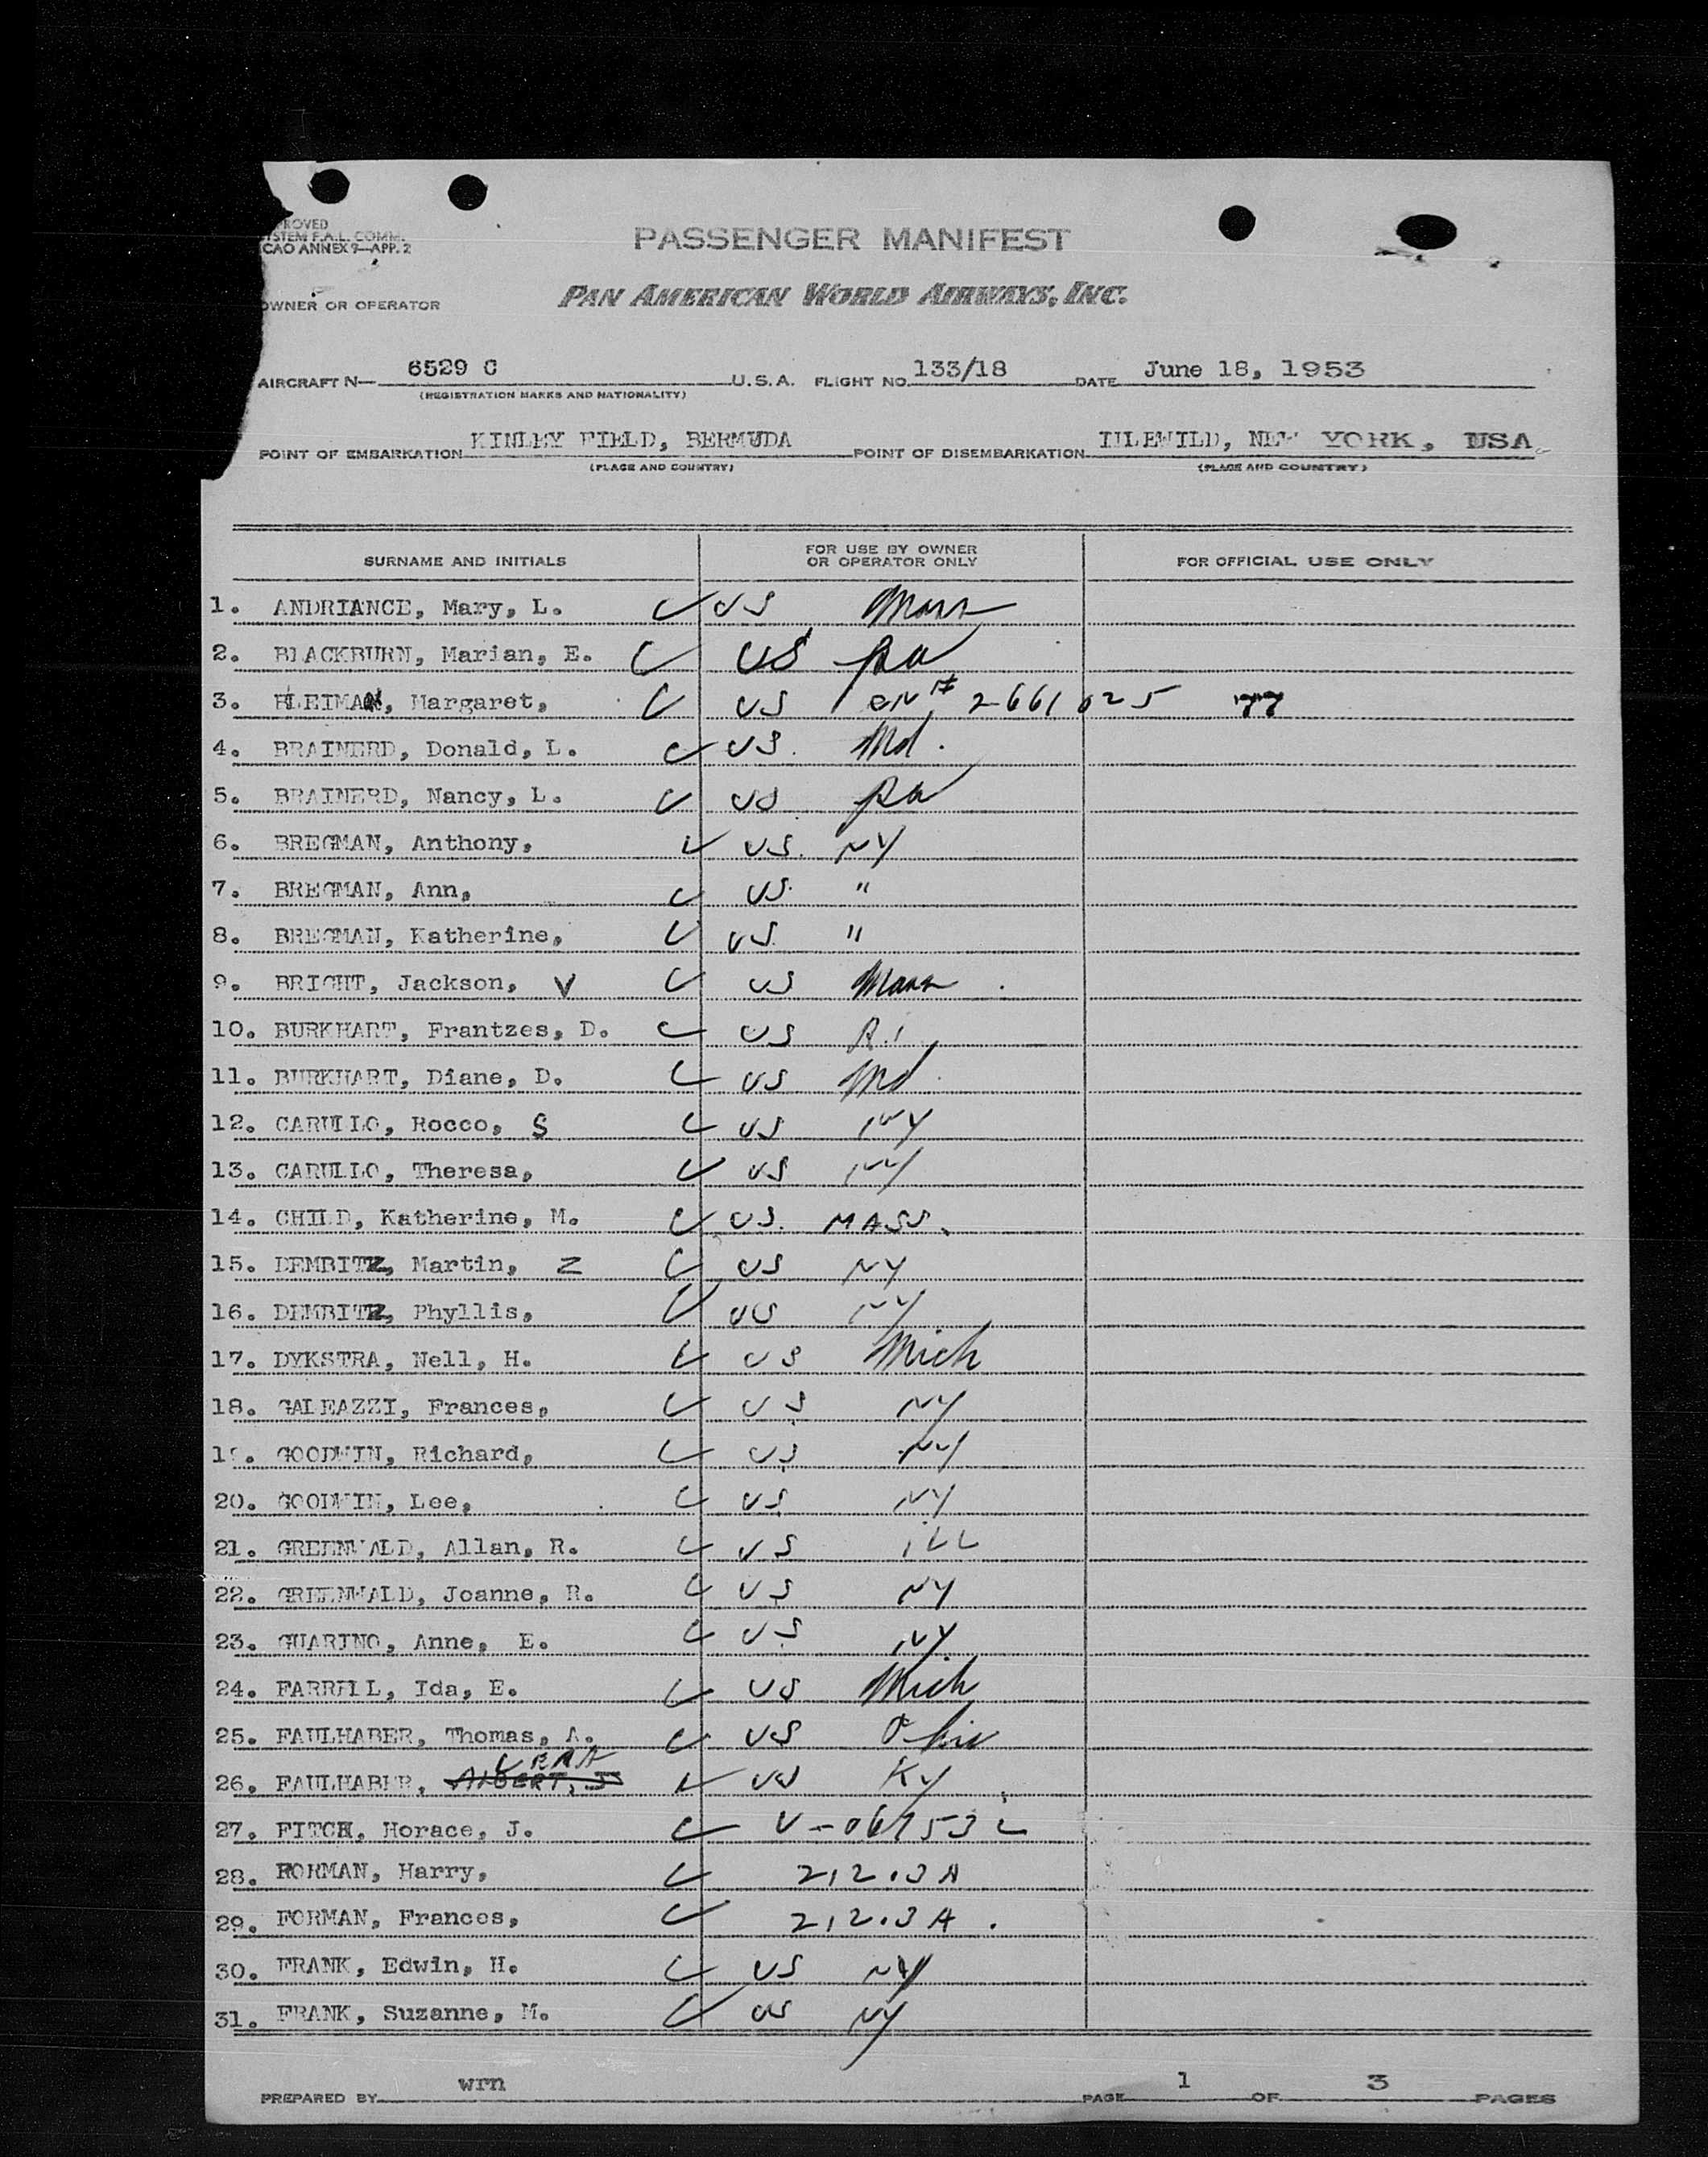 PROVED
YSTEM F.A.L. COMM.
CAO ANNEX 9—APP. 2
PASSENGER MANIFEST
OWNER OR OPERATOR PAN AMERICAN WORLD AIRWAYS, INC.
AIRCRAFT N— 6529 C U.S.A. FLIGHT NO. 133/18 DATE June 18, 1953
(REGISTRATION MARKS AND NATIONALITY)
POINT OF EMBARKATION KINLEY FIELD, BERMUDA POINT OF DISEMBARKATION IDLEWILD, NEW YORK, USA
(PLACE AND COUNTRY) (PLACE AND COUNTRY)
SURNAME AND INITIALS FOR USE BY OWNER OR OPERATOR ONLY FOR OFFICIAL USE ONLY
1. ANDRIANCE, Mary, L. US Mass
2. BLACKBURN, Marian, E. US Pa
3. Margaret, US CN# 2661625
4. BRAINERD, Donald, L. US. Md.
5. BRAINERD, Nancy, L. US Pa
6. BREGMAN, Anthony, US. NY
7. BREGMAN, Ann, US. "
8. BREGMAN, Katherine, US. "
9. BRIGHT, Jackson, V US Mass
10. BURKHART, Frantzes, D. US R.I
11. BURKHART, Diane, D. US Md.
12. CARULLO, Rocco, S US NY
13. CARULLO, Theresa, US NY
14. CHILD, Katherine, M. US. MASS.
15. DEMBITZ, Martin, Z US NY
16. DEMBITZ, Phyllis, US NY
17. DYKSTRA, Nell, H. US Mich
18. GALEAZZI, Frances, US NY
19. GOODWIN, Richard, US NY
20. GOODWIN, Lee, US NY
21. GREENWALD, Allan, R. US ILL
22. GREENWALD, Joanne, R. US NY
23. GUARINO, Anne, E. US NY
24. FARRELL, Ida, E. US Mich
25. FAULHABER, Thomas, A. US Ohio
26. FAULHABER, ALBERT, J US Ky
27. FITCH, Horace, J.
28. FORMAN, Harry, 212.3A
29. FORMAN, Frances, 212.3A.
30. FRANK, Edwin, H. US NY
31. FRANK, Suzanne, M. US NY
PREPARED BY wrn PAGE 1 OF 3 PAGES